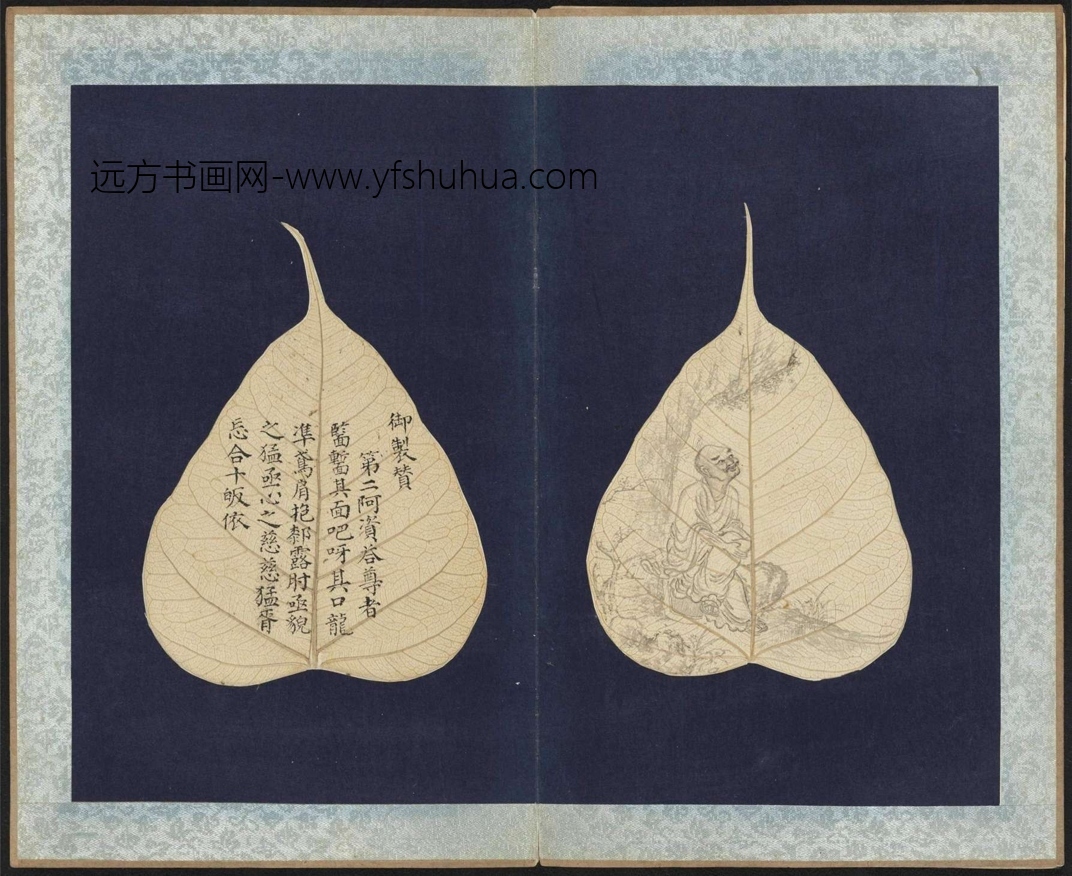 远方书画网-www.yfshuhua.com
御製贊
第二阿資答尊者
醫醫其面吧呀其口龍
準鳶肩抱鄰露肘亟貌
之猛亟心之慈慈猛胥
忘合十皈依